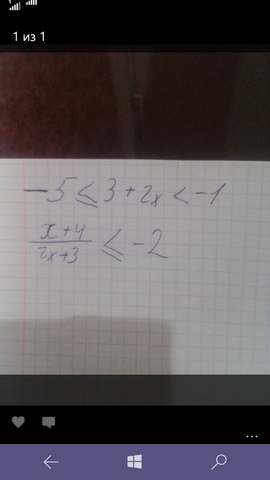 1 из 1
-5 ≤ 3 + 2x < -1
x+4 / 2x+3 ≤ -2
...